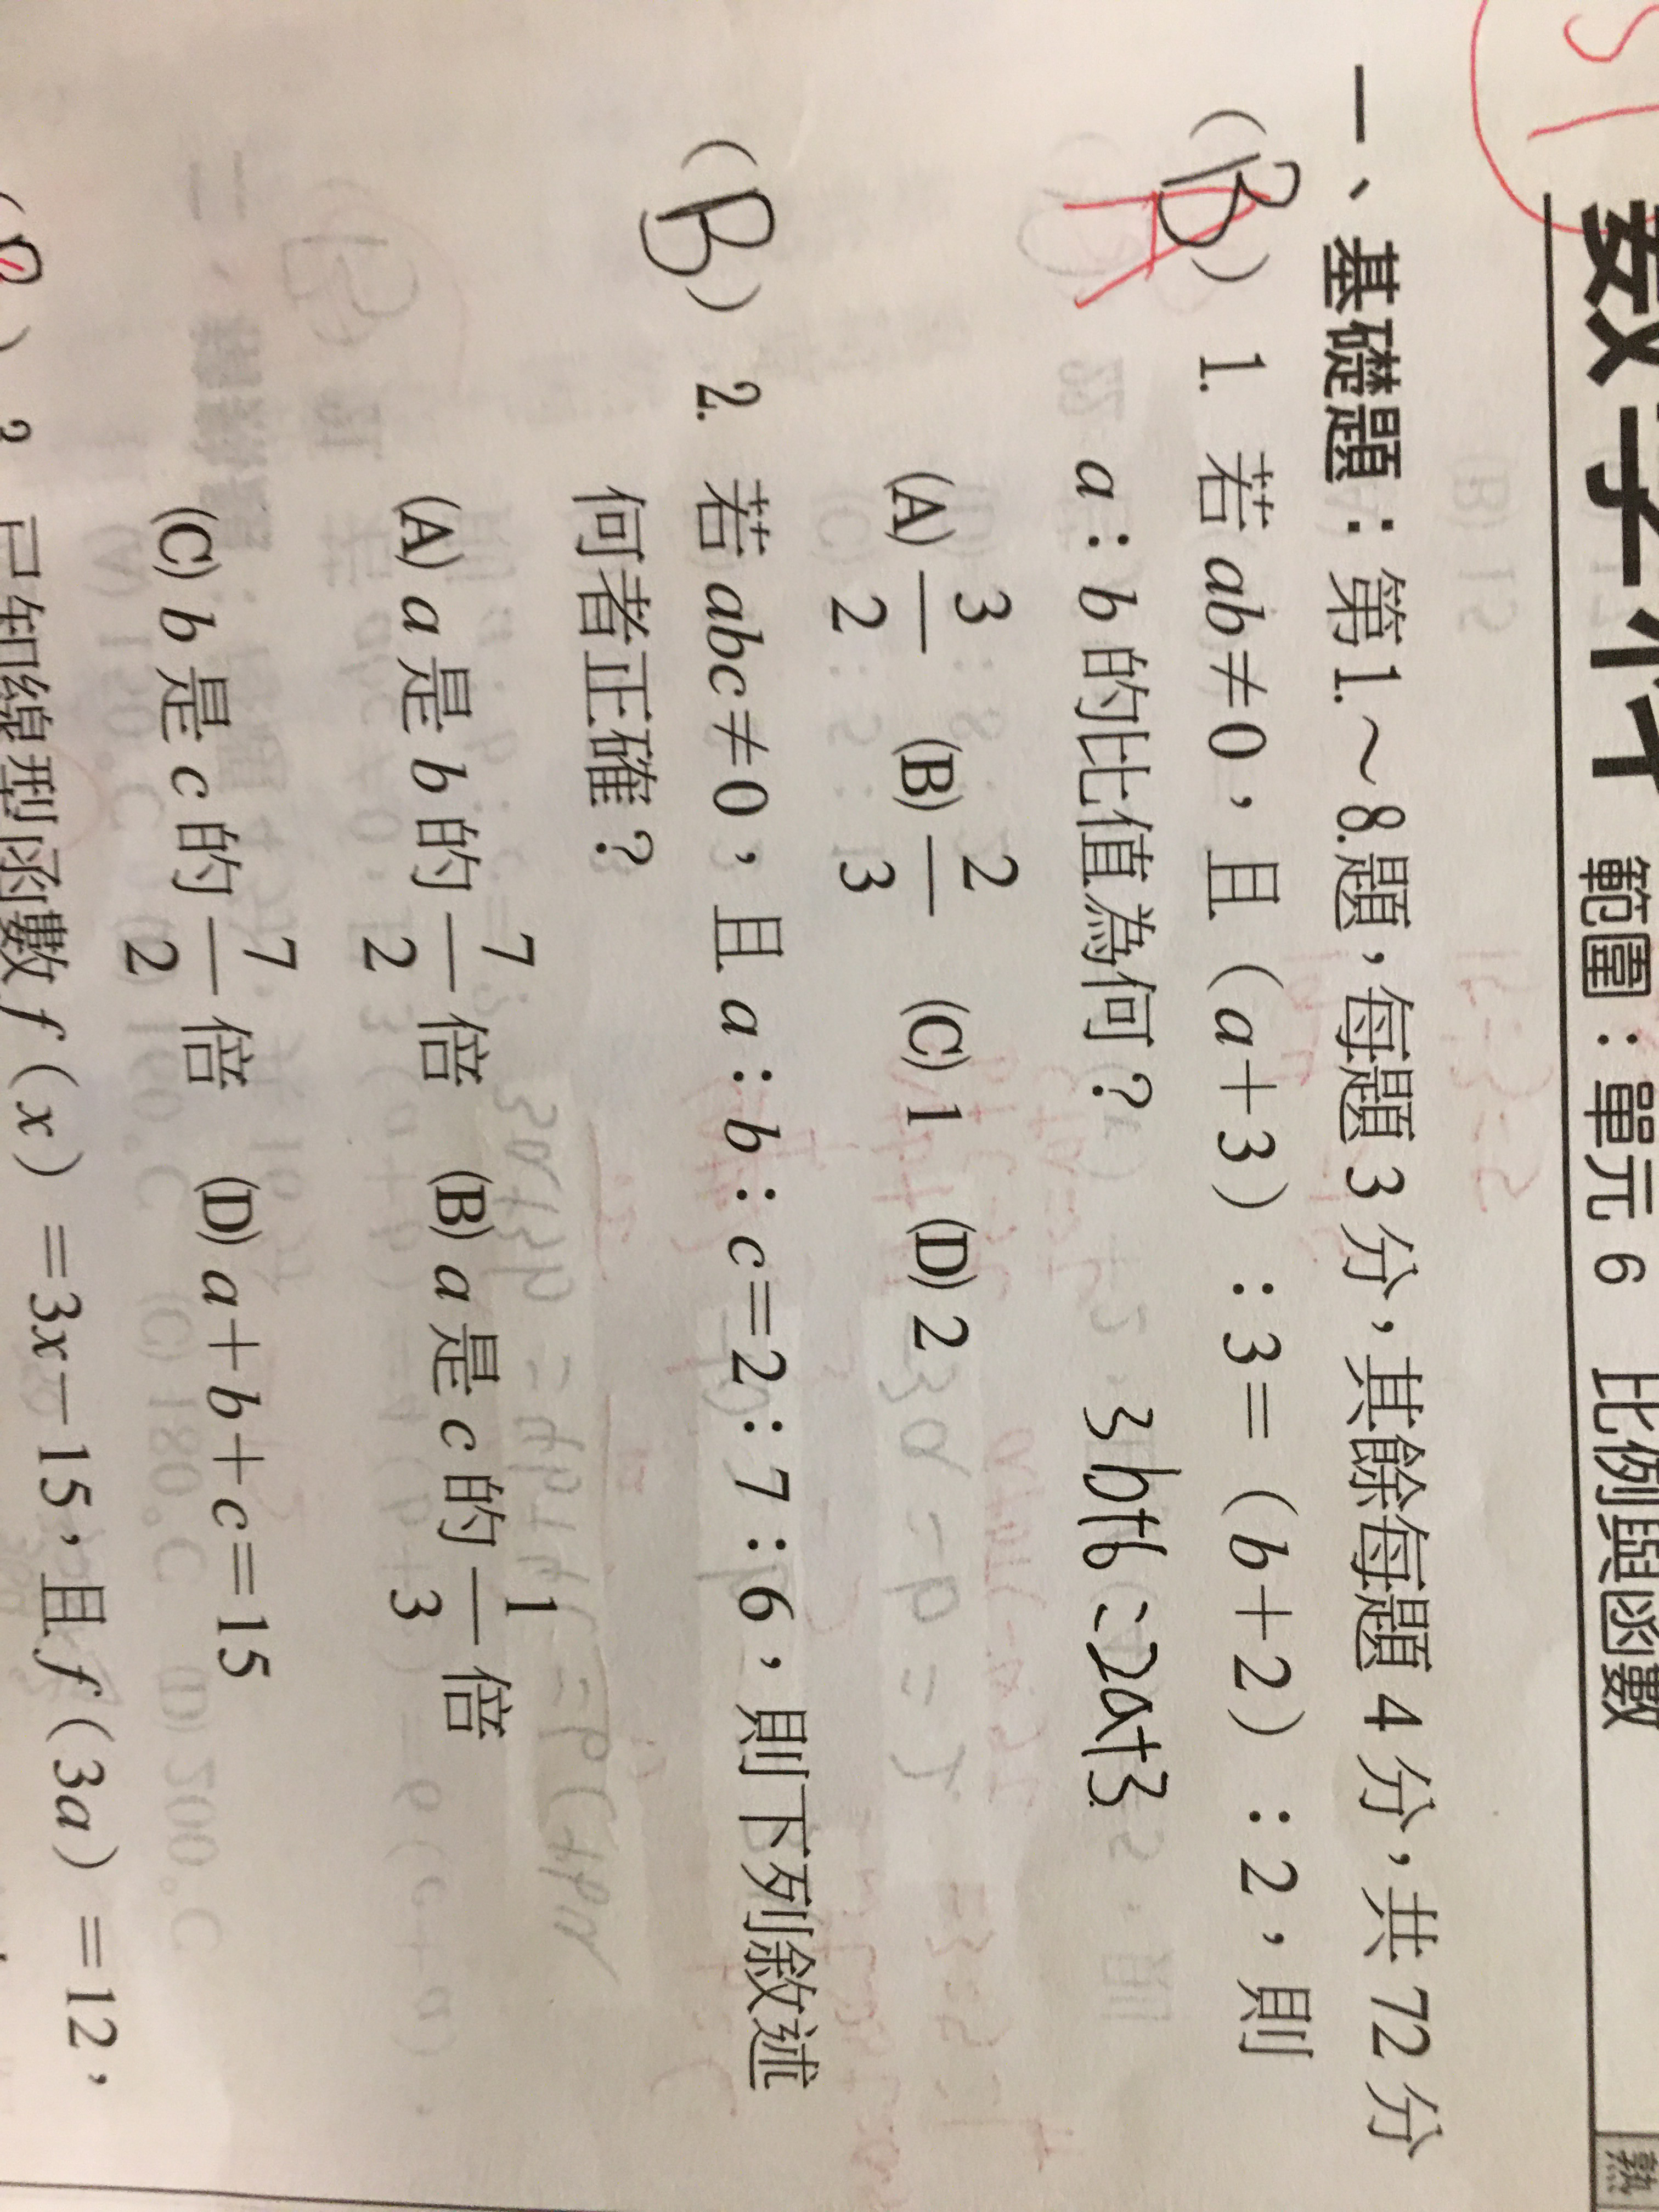 範圍：單元 6 比例與函數
一、基礎題：第 1.～8.題，每題 3 分，其餘每題 4 分，共 72 分
（B）1. 若 ab≠0，且（a＋3）：3＝（b＋2）：2，則
A
a：b 的比值為何？ 3b+6=2a+3
(A) 3/2 (B) 2/3 (C) 1 (D) 2
（B）2. 若 abc≠0，且 a：b：c＝2：7：6，則下列敘述
何者正確？
(A) a 是 b 的 7/2 倍 (B) a 是 c 的 1/3 倍
(C) b 是 c 的 7/2 倍 (D) a＋b＋c＝15
已知線型函數 f（x）＝3x－15，且 f（3a）＝12，